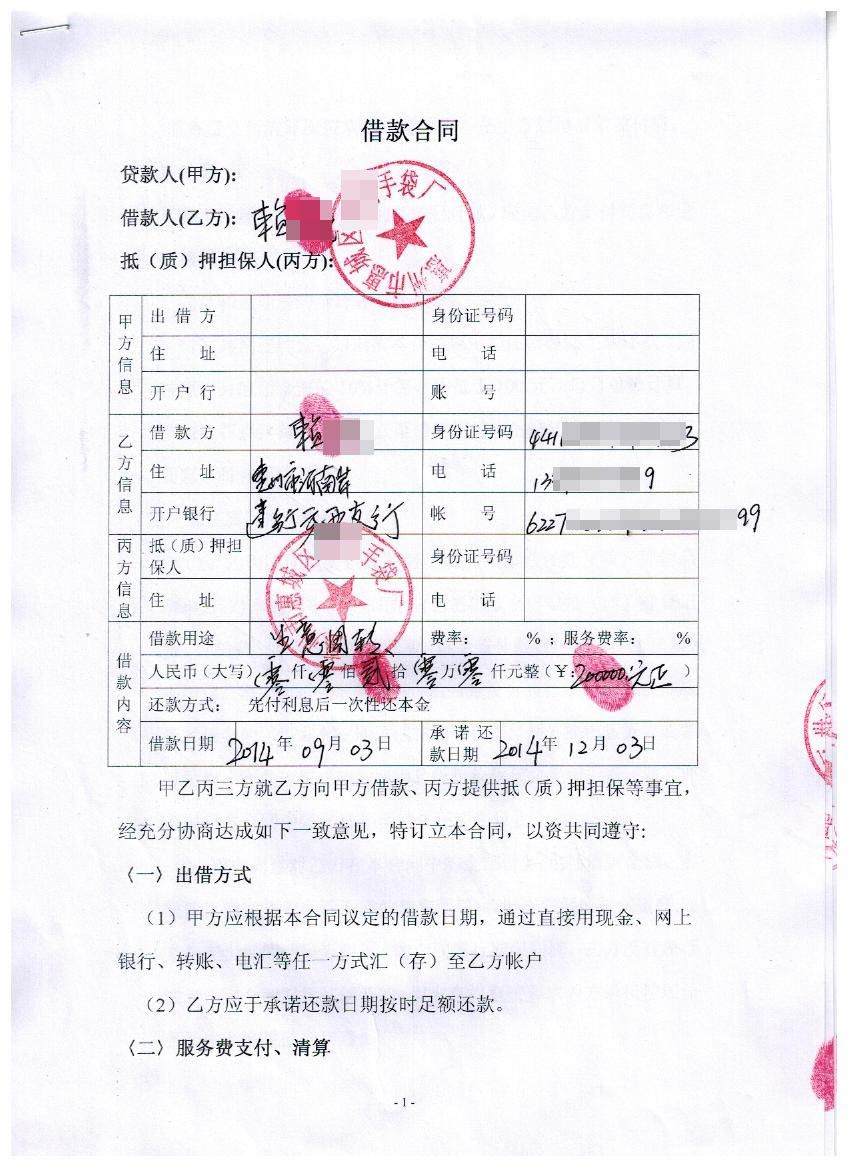 借款合同
贷款人(甲方):
借款人(乙方): 賴
手袋厂
惠州市惠城区
抵（质）押担保人(丙方):
甲方信息
出 借 方 身份证号码
住 址 电 话
开 户 行 账 号
乙方信息
借 款 方 賴 身份证号码 441 3
住 址 惠州市河南岸 电 话 13 9
开户银行 建行 支行 帐 号 6227 99
丙方信息
抵（质）押担保人 身份证号码
惠城区 手袋厂
住 址 电 话
借款内容
借款用途 生意周转 费率： %；服务费率： %
人民币（大写）零仟零佰贰拾零万零仟元整（¥：200000.元正）
还款方式： 先付利息后一次性还本金
借款日期 2014年 09月 03日 承诺还款日期 2014年 12月 03日
甲乙丙三方就乙方向甲方借款、丙方提供抵（质）押担保等事宜，
经充分协商达成如下一致意见，特订立本合同，以资共同遵守:
〈一〉出借方式
（1）甲方应根据本合同议定的借款日期，通过直接用现金、网上
银行、转账、电汇等任一方式汇（存）至乙方帐户
（2）乙方应于承诺还款日期按时足额还款。
〈二〉服务费支付、清算
- 1 -